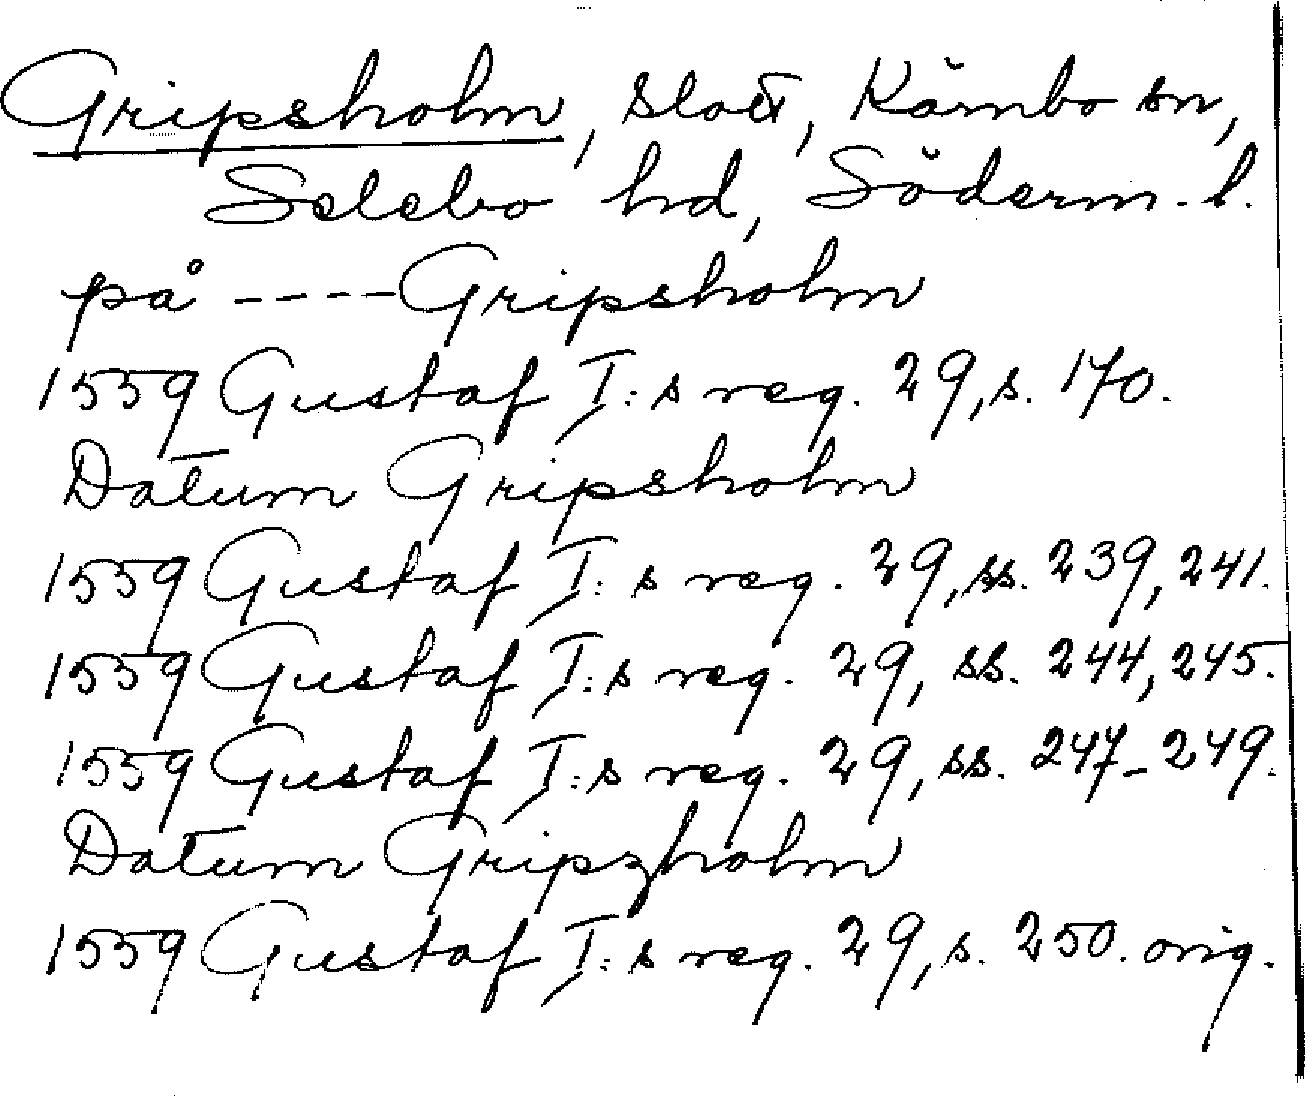 Gripsholm, slott, Kärnbo sn,
Selebo hd, Söderm. l.
på ---- Gripsholm
1559 Gustaf I:s reg. 29, s. 170.
Datum Gripsholm
1559 Gustaf I:s reg. 29, ss. 239, 241.
1559 Gustaf I:s reg. 29, ss. 244, 245.
1559 Gustaf I:s reg. 29, ss. 247-249.
Datum Gripzholm
1559 Gustaf I:s reg. 29, s. 250. orig.